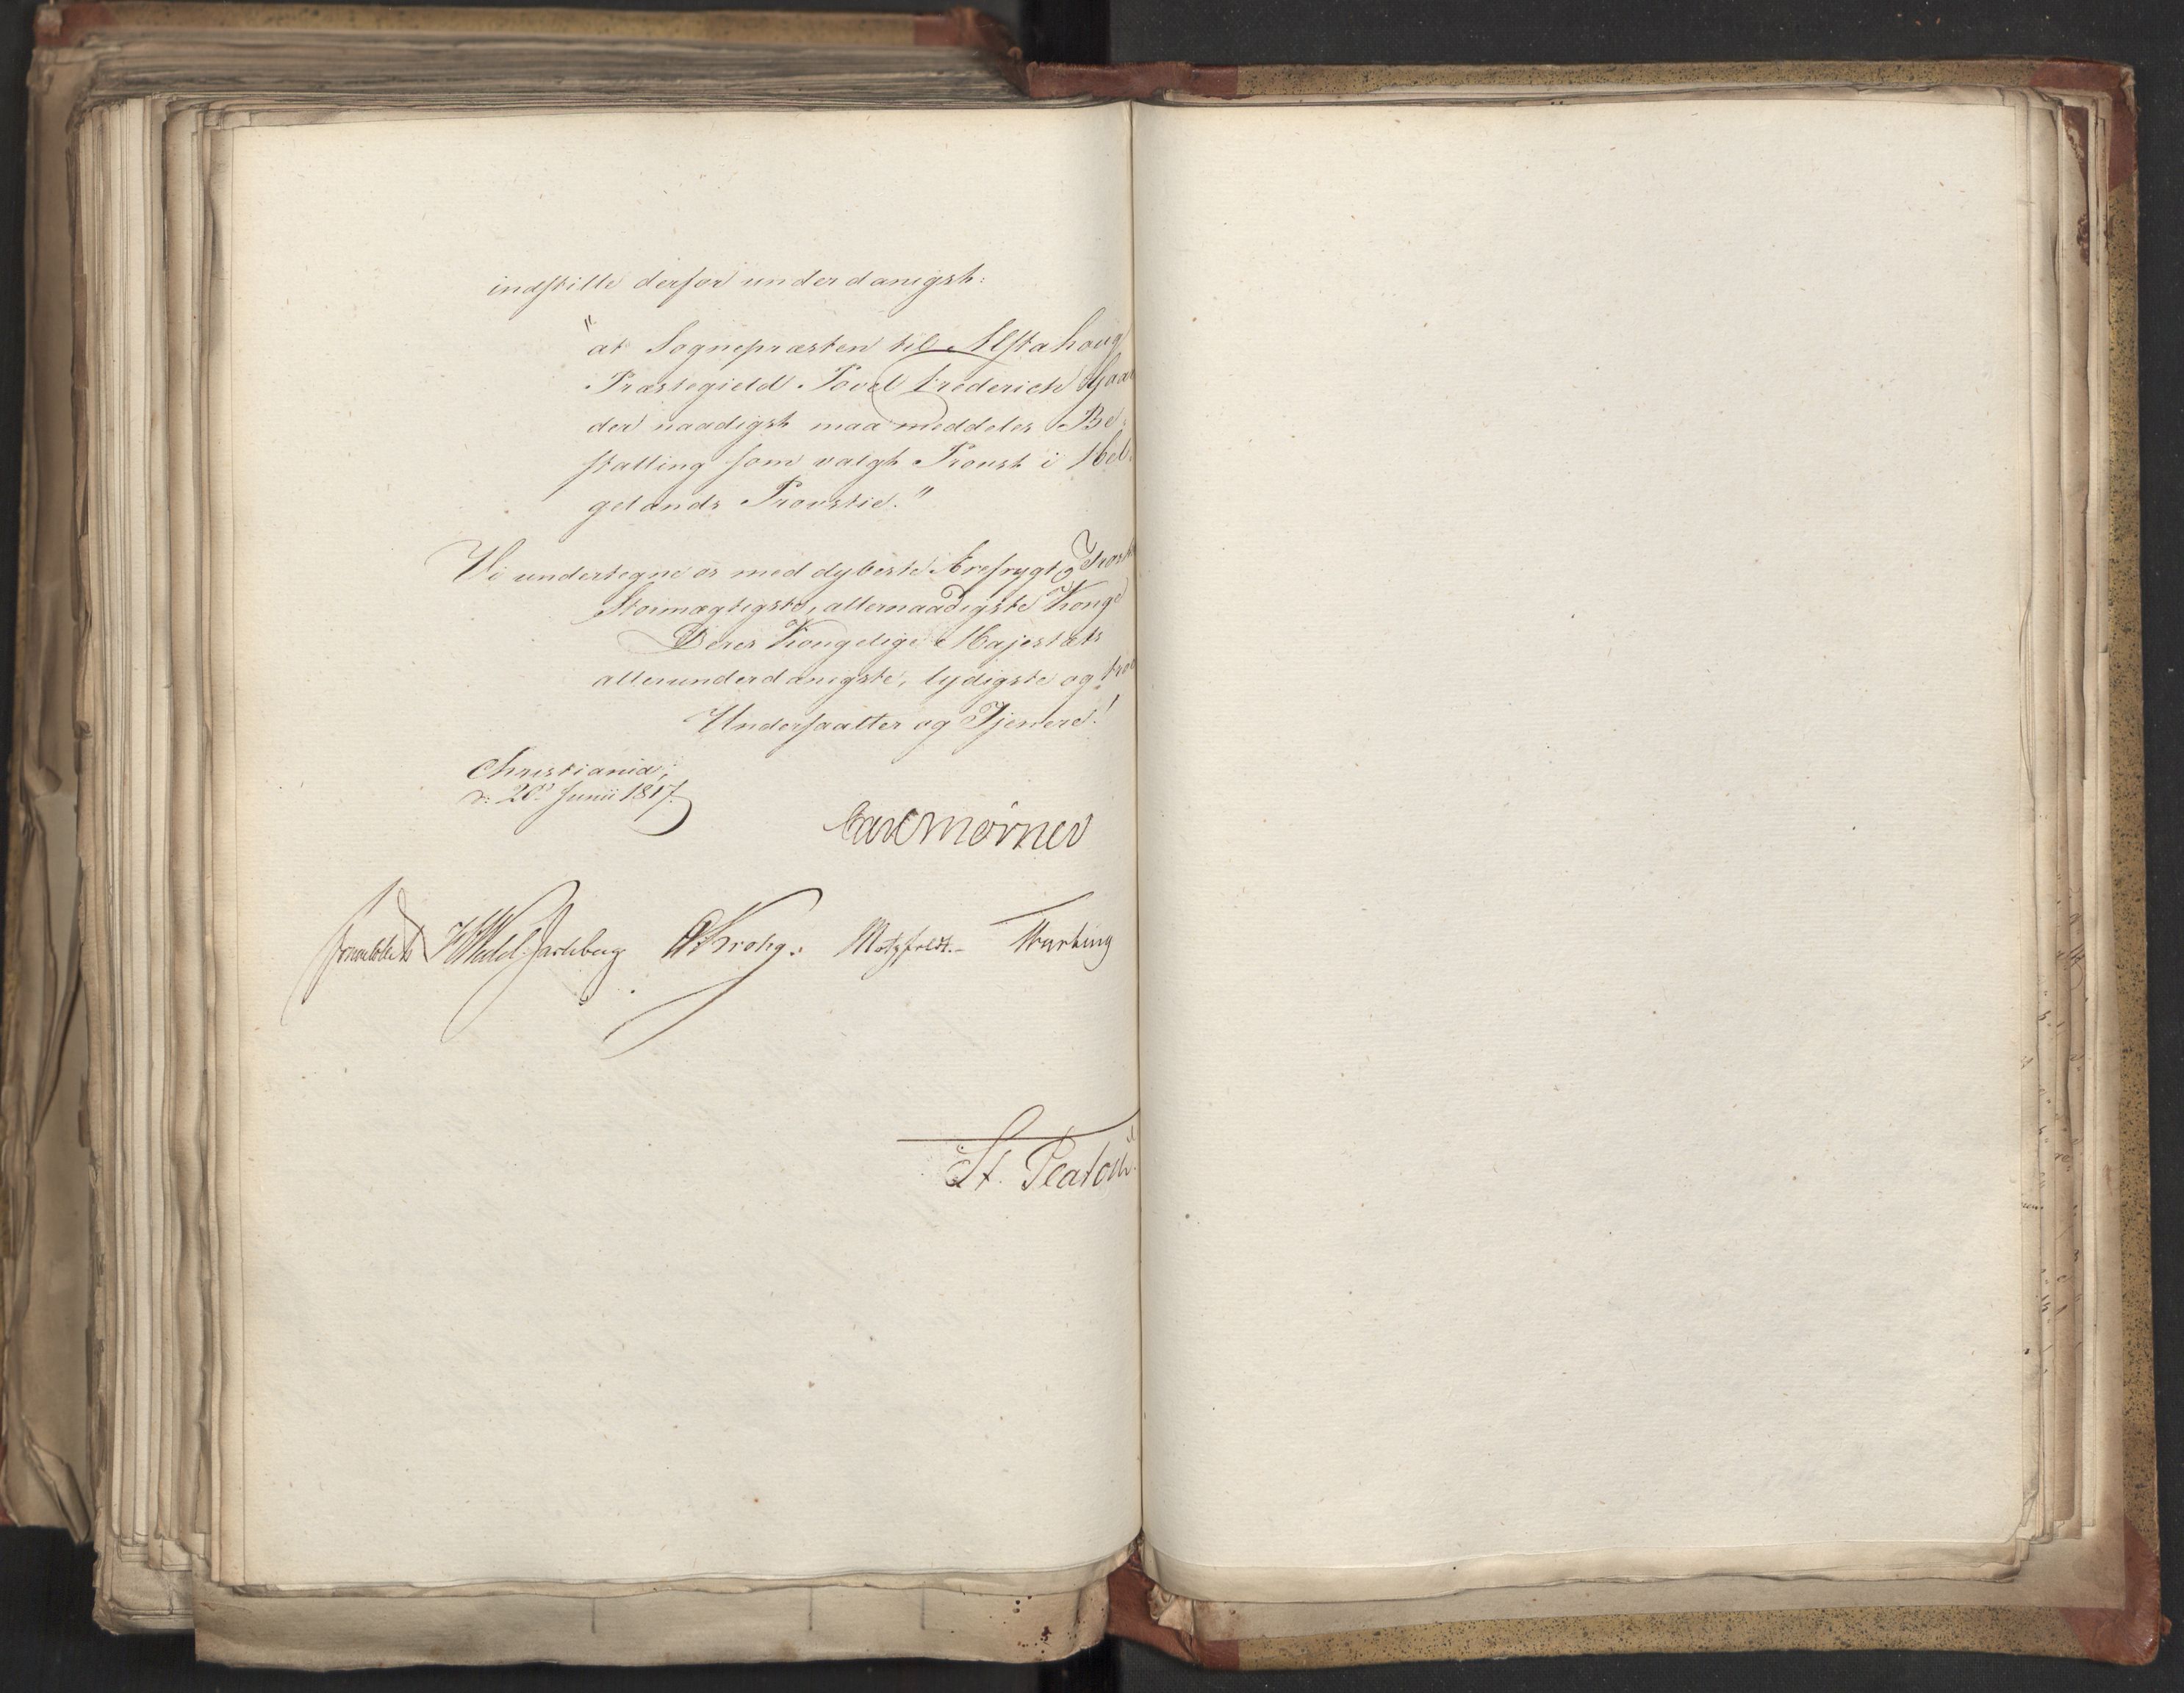 indstille derfor underdanigst:
"at Sognepræsten til Alstahoug
Præstegield Povel Frederich
der naadigst maa meddeles Be-
stalling som valgt Provst i Hel-
gelands Provstie."
Vi undertegne os med dybeste Ærefrygt,
Stormægtigste, allernaadigste Konge
Deres Kongelige Majestæts
allerunderdanigste, lydigste og troe
Undersaatter og Tjenere!
Christiania,
d: 20d Junii 1817.
Carl Mörner
Sommerhielm HWedel-Jarlsberg Krohg. Motzfeldt.
St. Platou